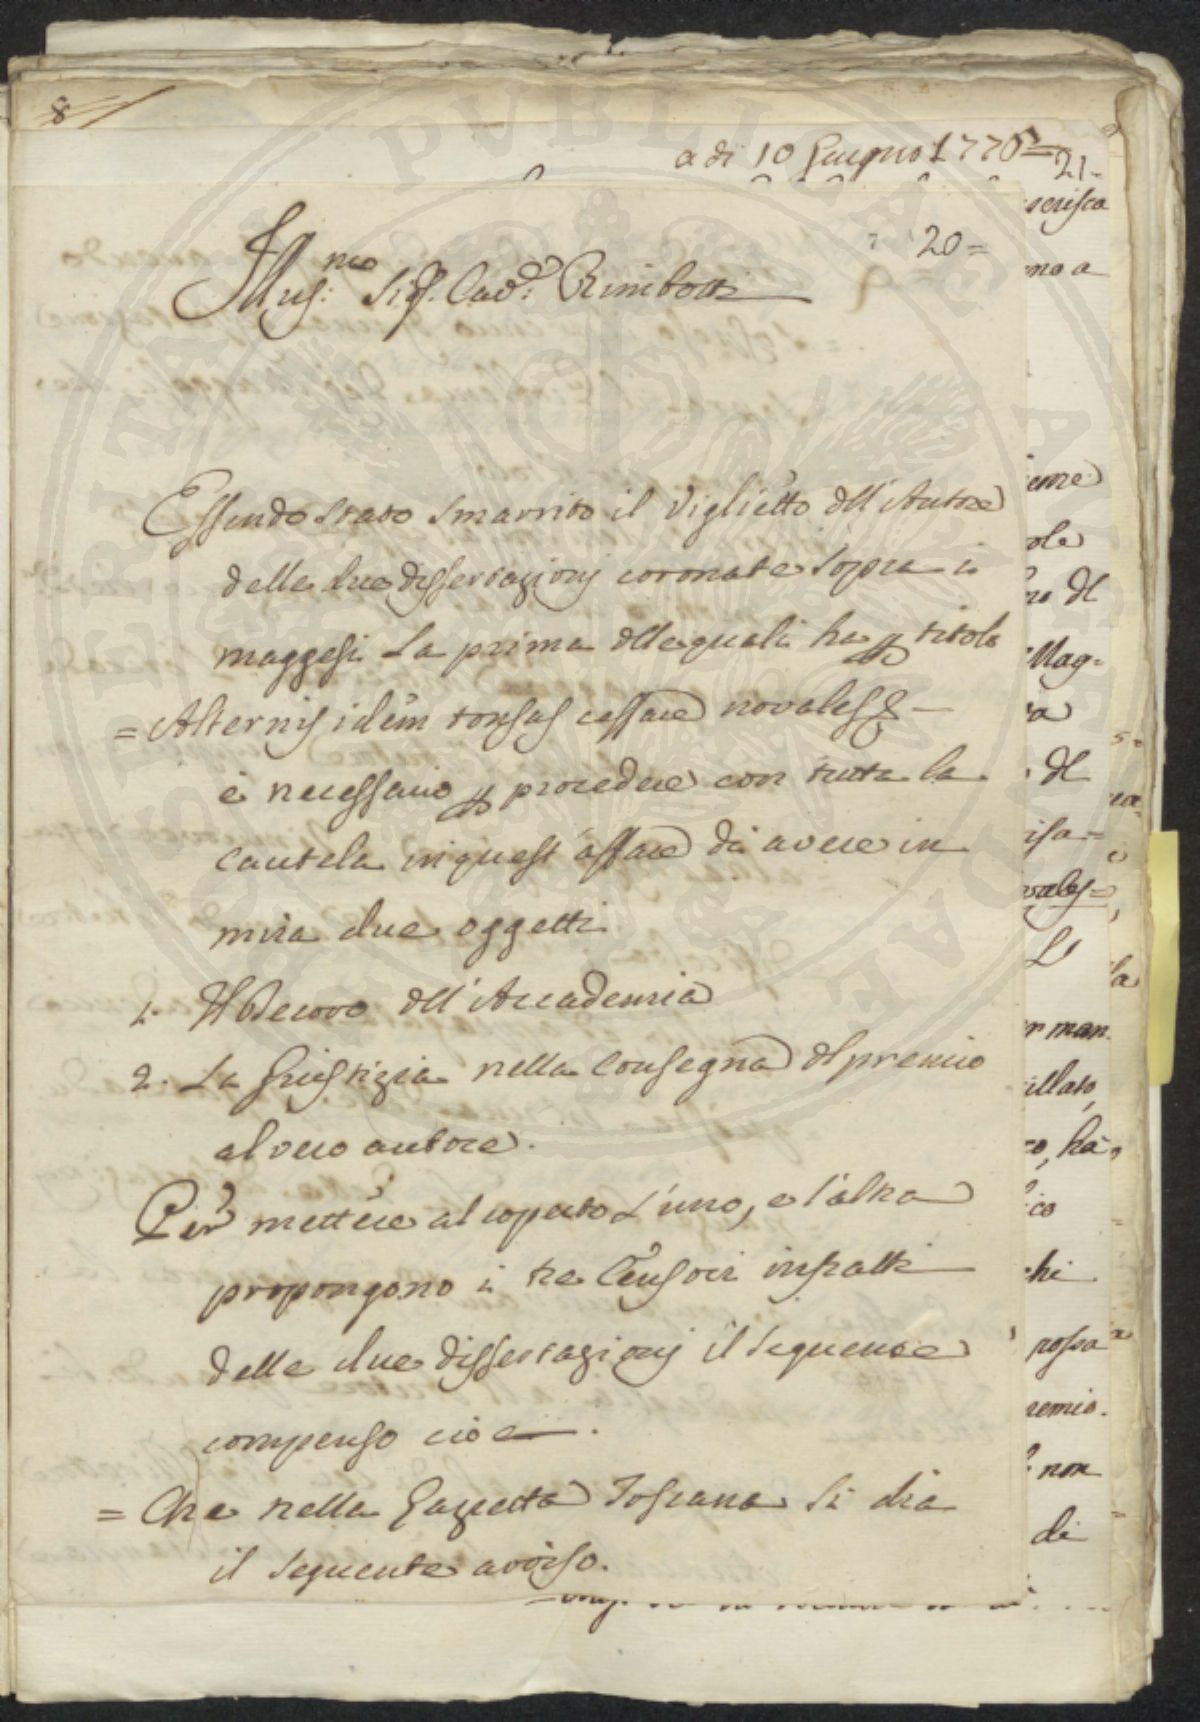 8
a di 10 Giugno 1770=
21-
20=
Illus:mo Sig.r Cav.r Rimbotti
Essendo stato smarrito il Viglietto dell'Autore
delle due dissertazioni coronate sopra i
maggesi. La prima delle quali ha p titolo
= Alternis idem tonsas cessare novales &-
è necessario p procedere con tutta la
cautela in quest'affare di avere in
mira due oggetti
1. Il Decoro dell'Accademia
2. La Giustizia nella Consegna del premio
al vero autore.
Per mettere al coperto l'uno, e l'altra
propongono i tre Censori
delle due dissertazioni il seguente
compenso cioe.
= Che nella Gazzetta Toscana si dia
il seguente avviso.
scrisca
no a
ole
no del
Mag=
del
isa=
ovales=
Li
er man
illato,
ha
ico
chi
possa
remio.
non
di